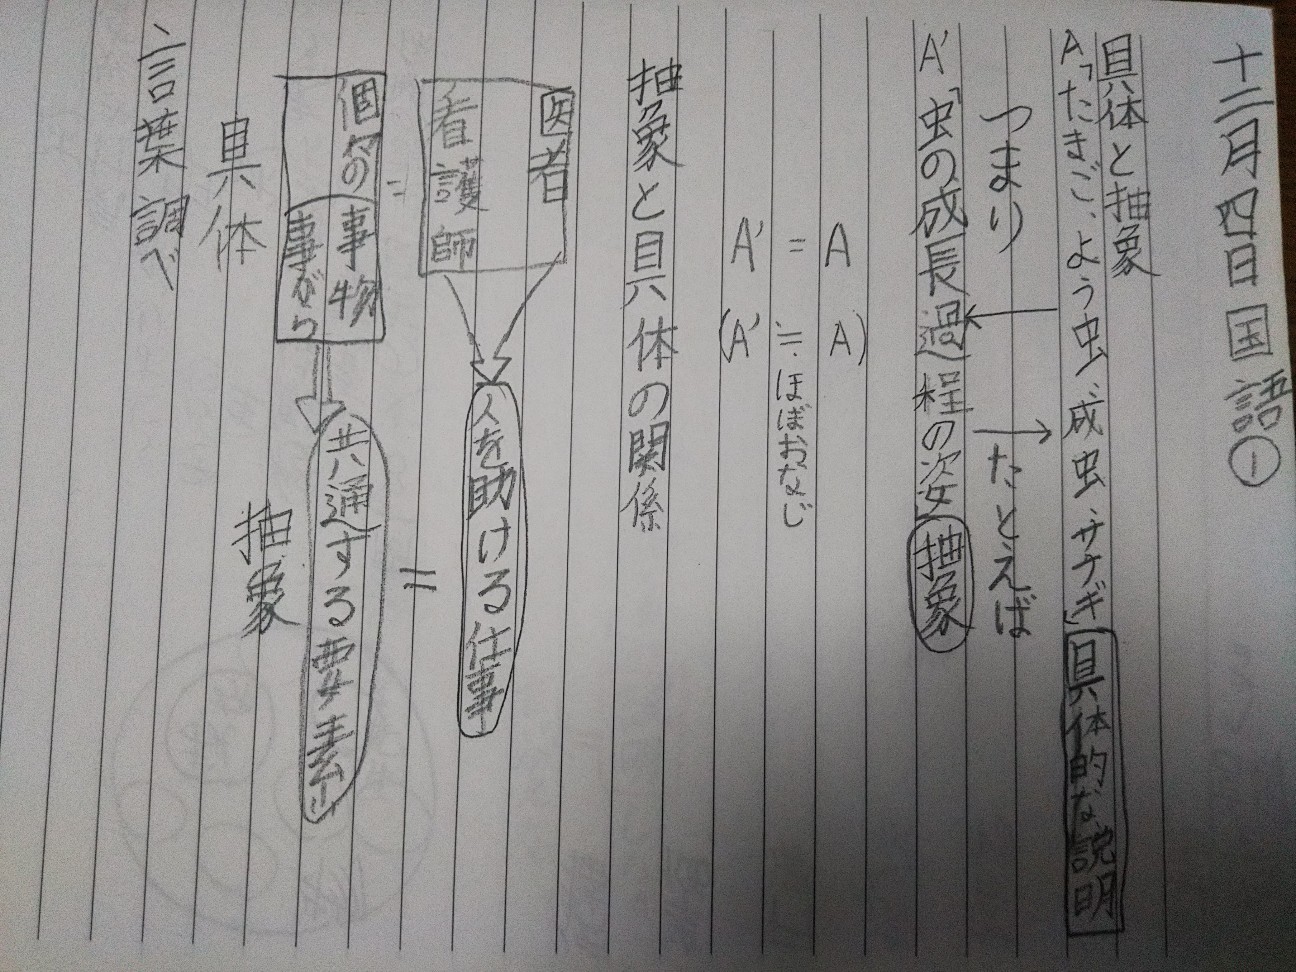 十二月四日 国語①
具体と抽象
A「たまご、よう虫、成虫、サナギ」具体的な説明
つまり
たとえば
A'「虫の成長過程の姿 抽象
A = A'
(A ≒ A')
ほぼおなじ
抽象と具体の関係
医者
看護師
人を助ける仕事
=
=
個々の事物
事がら
共通する要素
具体
抽象
言葉調べ